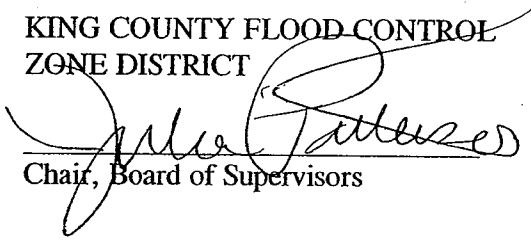 KING COUNTY FLOOD CONTROL
ZONE DISTRICT
Julia Patterson
Chair, Board of Supervisors